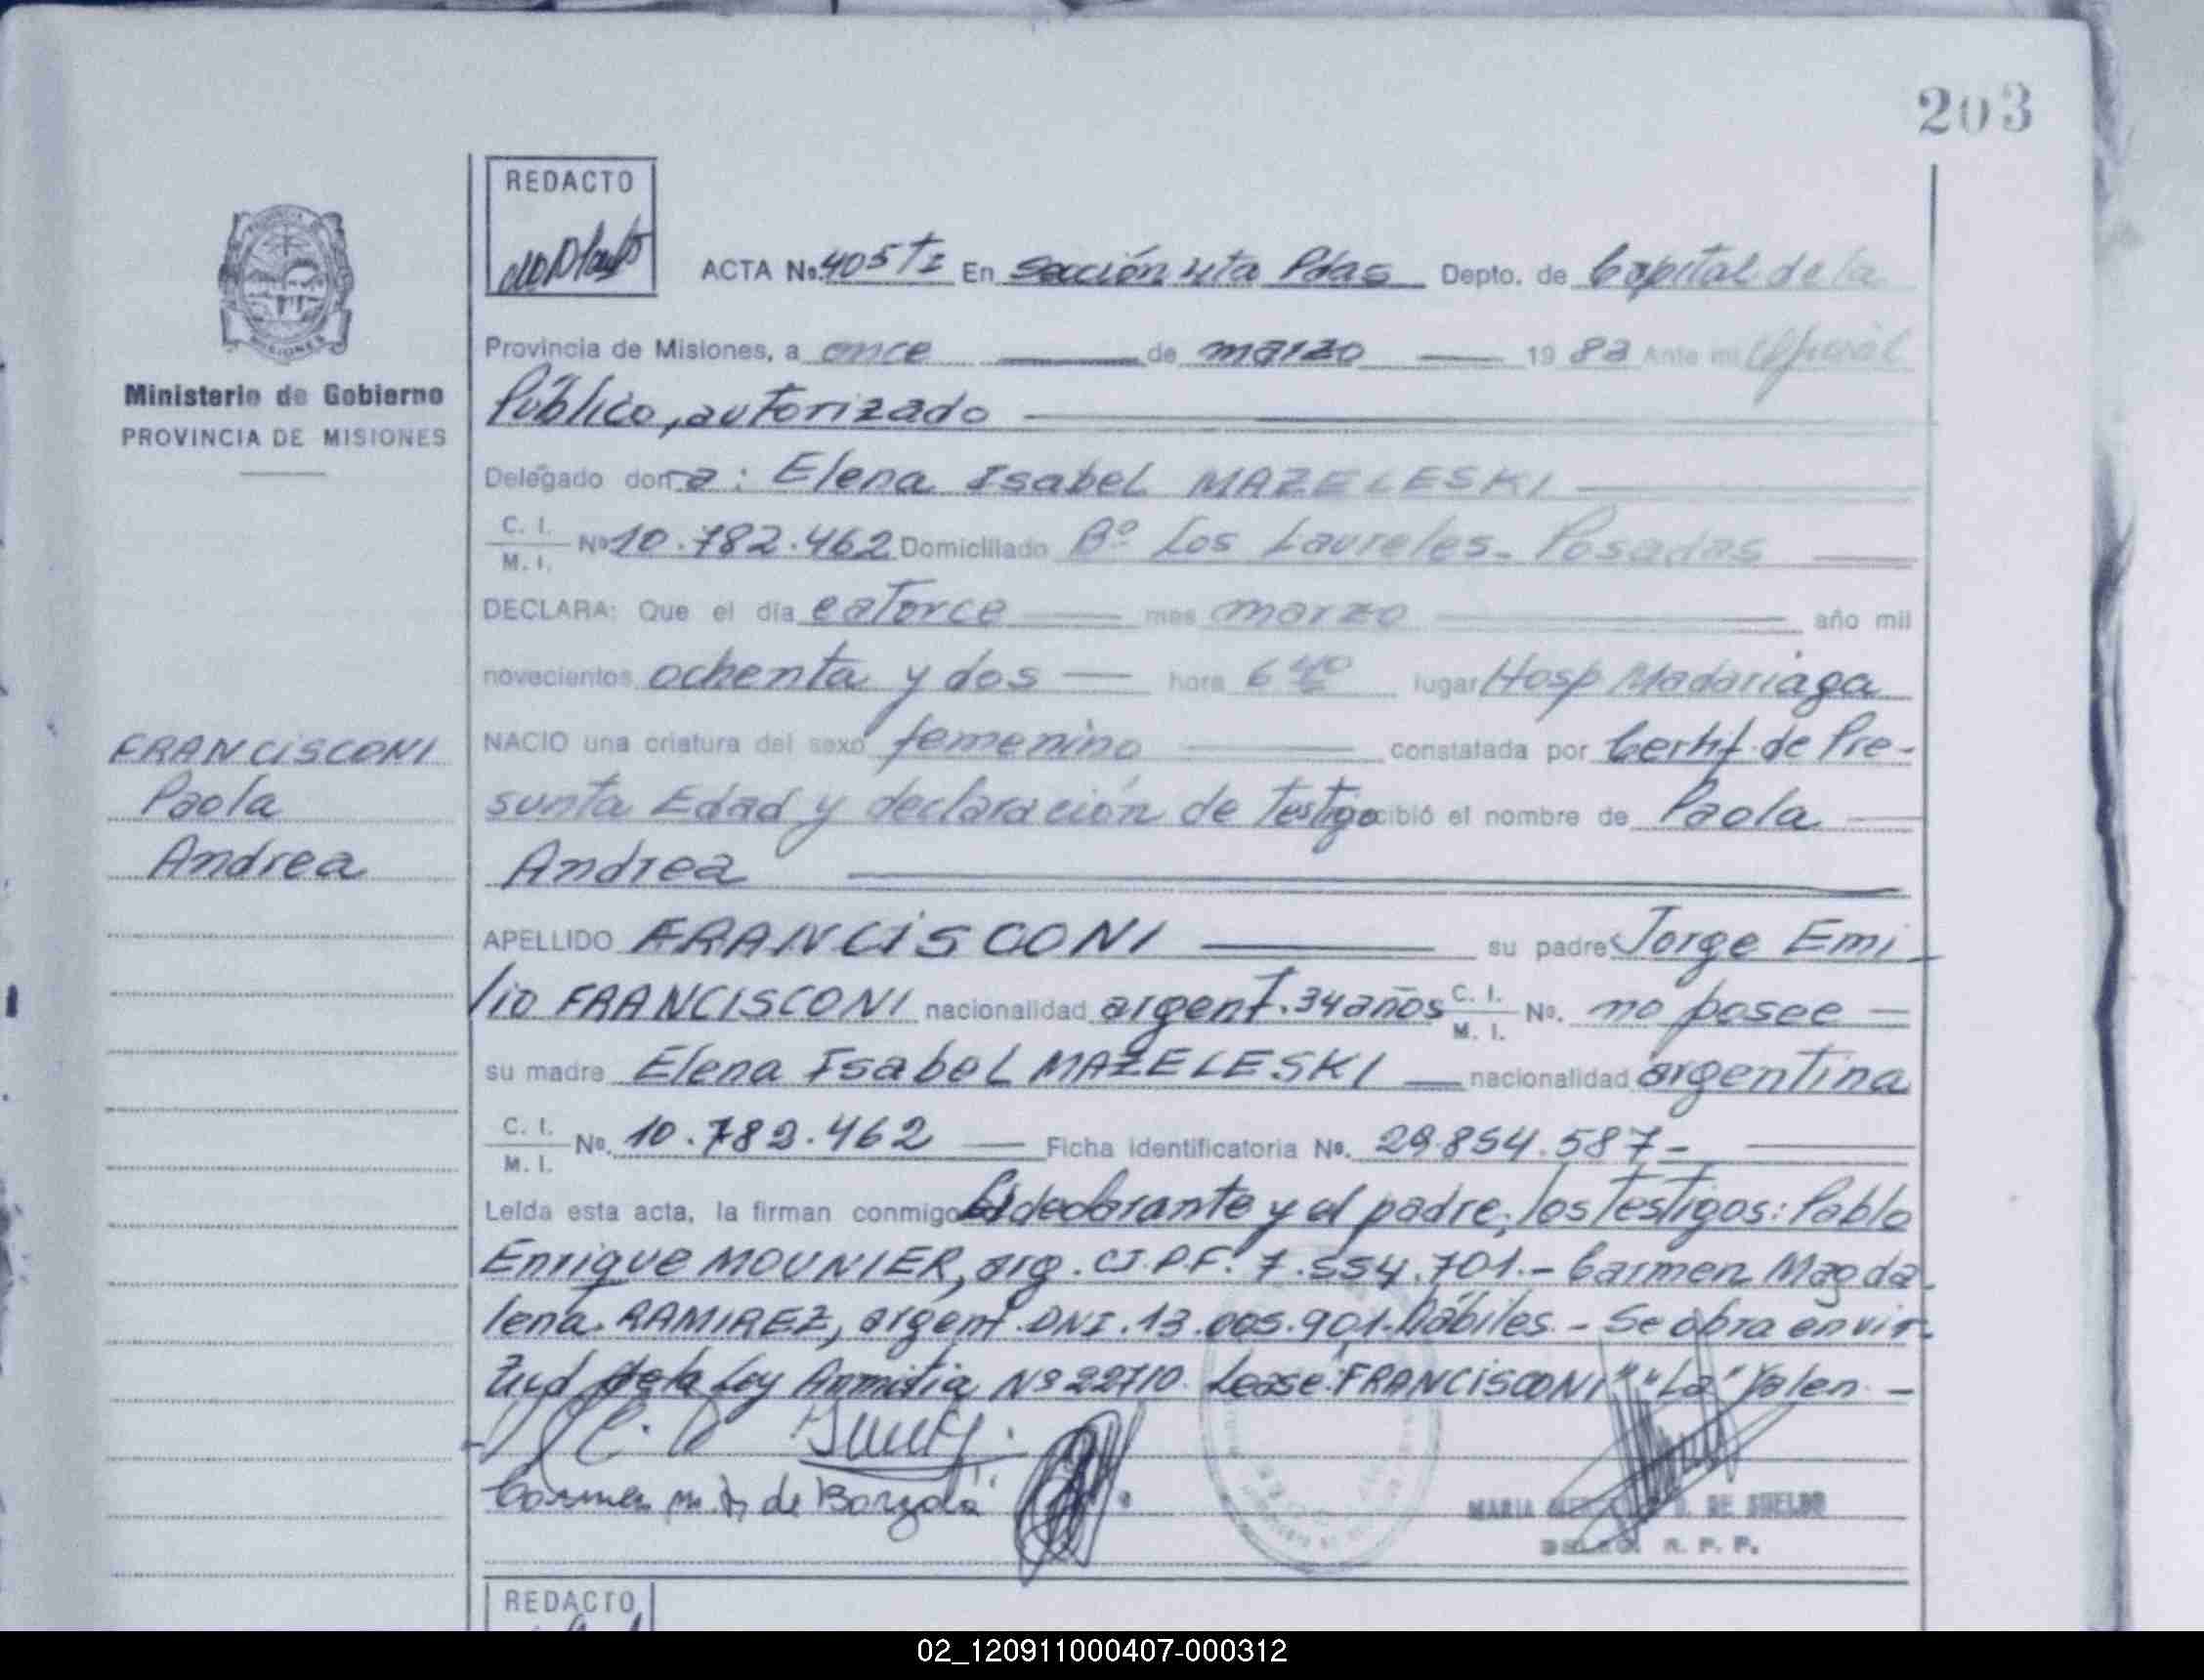 203
REDACTO
ACTA No. 405 TI En Sección 4ta Pdas Depto. de Capital de la
Provincia de Misiones, a once de marzo 1983 Ante mi Oficial
Público, autorizado
Ministerio de Gobierno
PROVINCIA DE MISIONES
Delegado don a: Elena Isabel MAZELESKI
C. I. M. I. No 10.782.462 Domiciliado Bº Los Laureles - Posadas
DECLARA: Que el día catorce mes marzo año mil
novecientos ochenta y dos hora 6 40 lugar Hosp Madariaga
NACIO una criatura del sexo femenino constatada por Certif. de Pre-
sunta Edad y declaración de testigo cibió el nombre de Paola
Andrea
FRANCISCONI
Paola
Andrea
APELLIDO FRANCISCONI su padre Jorge Emi-
lio FRANCISCONI nacionalidad argent. 34 años C. I. M. I. No. no posee
su madre Elena Isabel MAZELESKI nacionalidad argentina
C. I. M. I. No. 10.782.462 Ficha identificatoria No. 29.854.587-
Leída esta acta, la firman conmigo declarante y el padre, los testigos: Pablo
Enrique MOUNIER, arg. CI.P.F. 7.554.701.- Carmen Magda-
lena RAMIREZ, argent. DNI. 13.005.901. hábiles - Se obra en vir-
tud de la Ley Amnistia Nº 22710. Lease: "FRANCISCONI" "La" Valen. -
Carmen de
MARIA D. DE SUELDO
R. P. P.
REDACTO
02_120911000407-000312